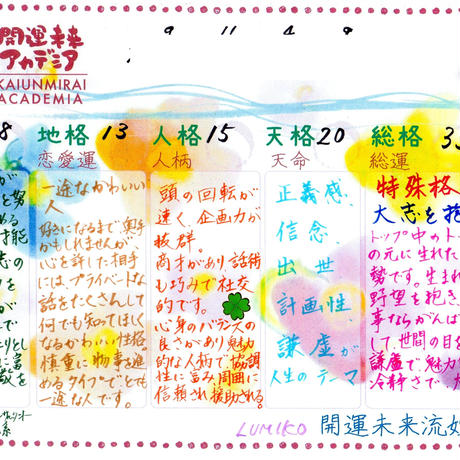 開運未来
アカデミア
KAIUNMIRAI
ACADEMIA
9 11 4 9
8
地格 13
恋愛運
一途なかわいい
人
好きになるまで奥手
かもしれませんが、
心を許した相手
には、プライベートな
話をたくさんして
何でも知ってほしく
なるかわいい性格。
慎重に物事を進
めるタイプでとても
一途な人です。
人格 15
人柄
頭の回転が
速く、企画力が
抜群。
商才があり話術
も巧みで社交
的です。
心身のバランスの
良さがあり魅力
的な人柄で協調
性に富み周囲に
信頼され援助される。
天格 20
天命
正義感、
信念、
出世、
計画性、
謙虚が
人生のテーマ
総格 3
総運
特殊格
大志を抱
トップ中のト
の元に生れた
勢です。生まれ
野望を抱き
事ならがんば
して、世間の目を
謙虚で魅力
冷静さで、
LUMIKO
開運未来流